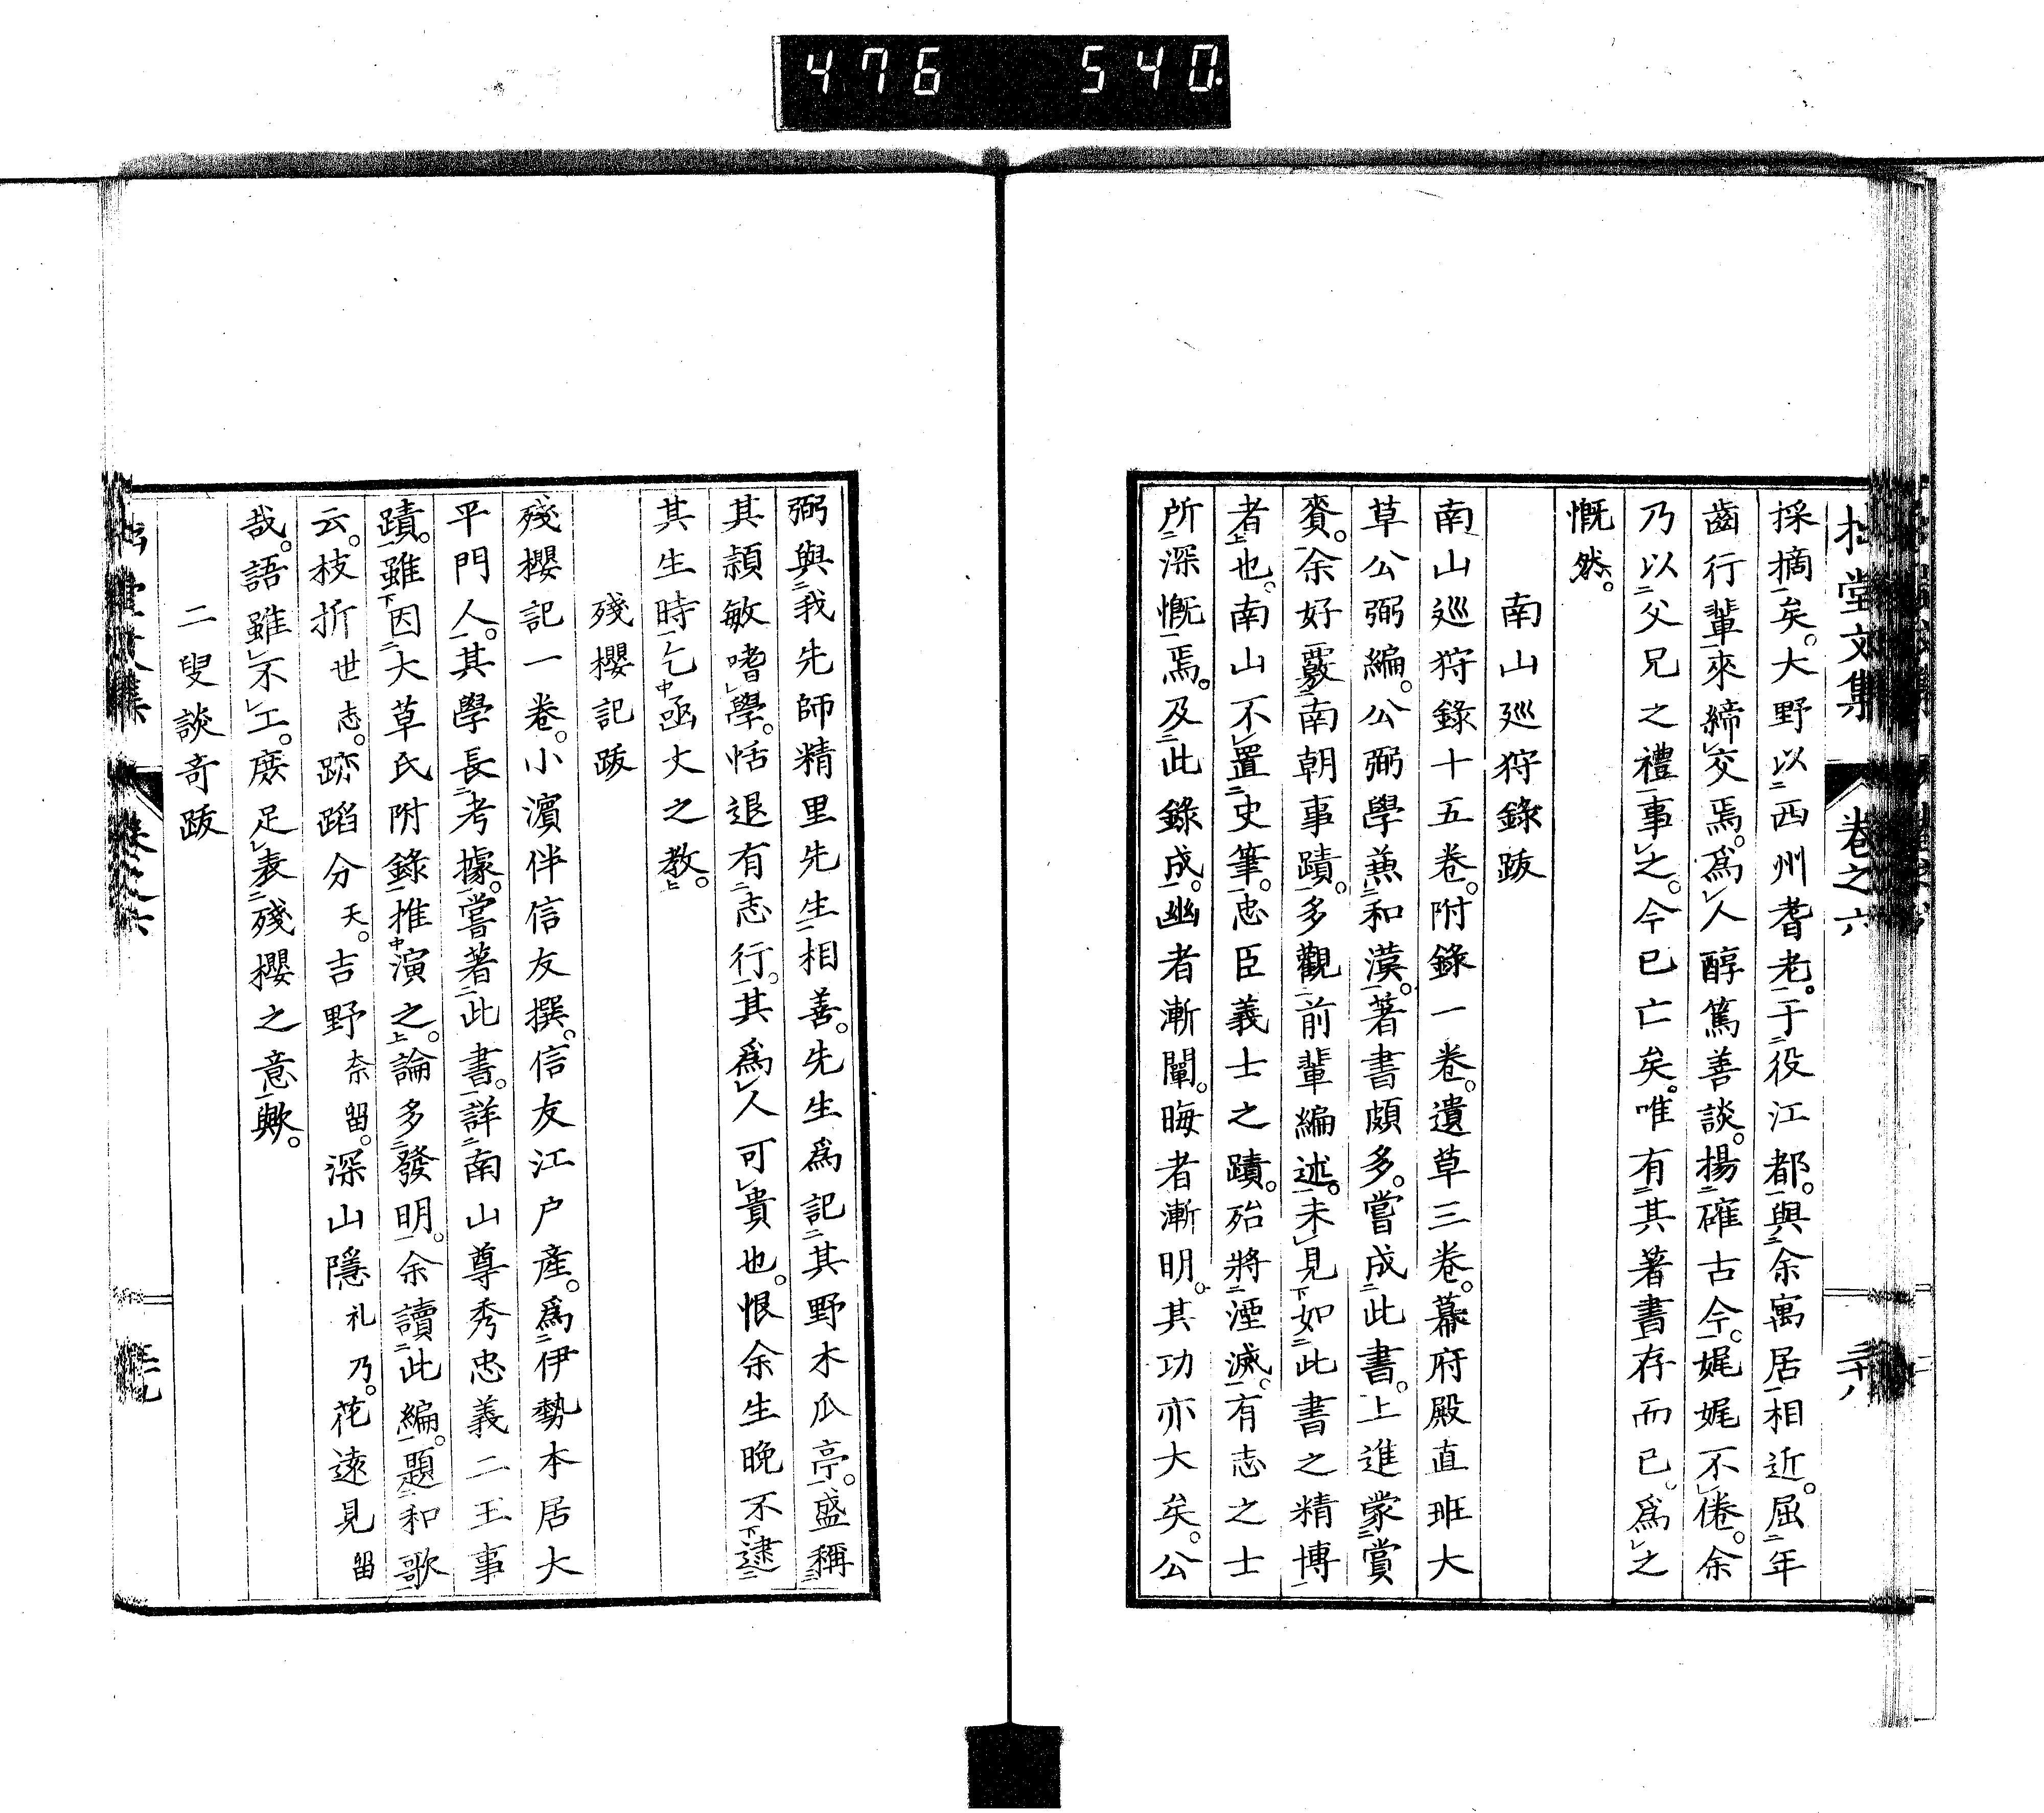 476 540
拙堂文集 卷之六 三十八
採摘矣。大野以西州耆老。于役江都。與余寓居相近。屈年
齒行輩來締交焉。爲人醇篤善談。揚確古今。娓娓不倦。余
乃以父兄之禮事之。今已亡矣。唯有其著書存而已。爲之
慨然。
南山巡狩錄跋
南山巡狩錄十五卷。附錄一卷。遺草三卷。幕府殿直班大
草公弼編。公弼學兼和漢。著書頗多。嘗成此書。上進蒙賞
賚。余好覈南朝事蹟。多觀前輩編述。未見如此書之精博
者也。南山不置史筆。忠臣義士之蹟。殆將湮滅。有志之士
所深慨焉。及此錄成。幽者漸闡。晦者漸明。其功亦大矣。公
弼與我先師精里先生相善。先生爲記其野木瓜亭。盛稱
其穎敏嗜學。恬退有志行。其爲人可貴也。恨余生晚不逮
其生時乞函丈之教。
殘櫻記跋
殘櫻記一卷。小濵伴信友撰。信友江户產。爲伊勢本居大
平門人。其學長考據。嘗著此書。詳南山尊秀忠義二王事
蹟。雖因大草氏附錄推演之。論多發明。余讀此編。題和歌
云。枝折世志。跡蹈分天。吉野奈留。深山隱礼乃。花遠見留
哉。語雖不工。庶足表殘櫻之意歟。
二叟談奇跋